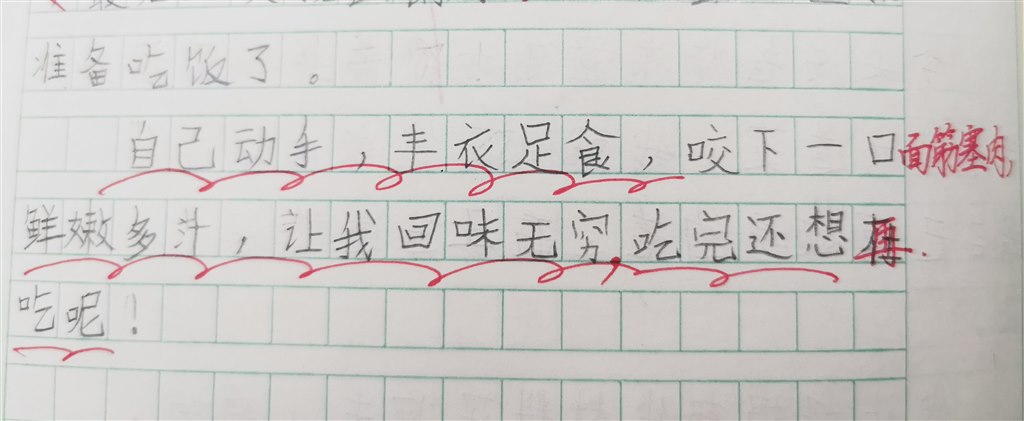 准备吃饭了。
自己动手，丰衣足食，咬下一口面筋塞肉，
鲜嫩多汁，让我回味无穷，吃完还想再
吃呢！